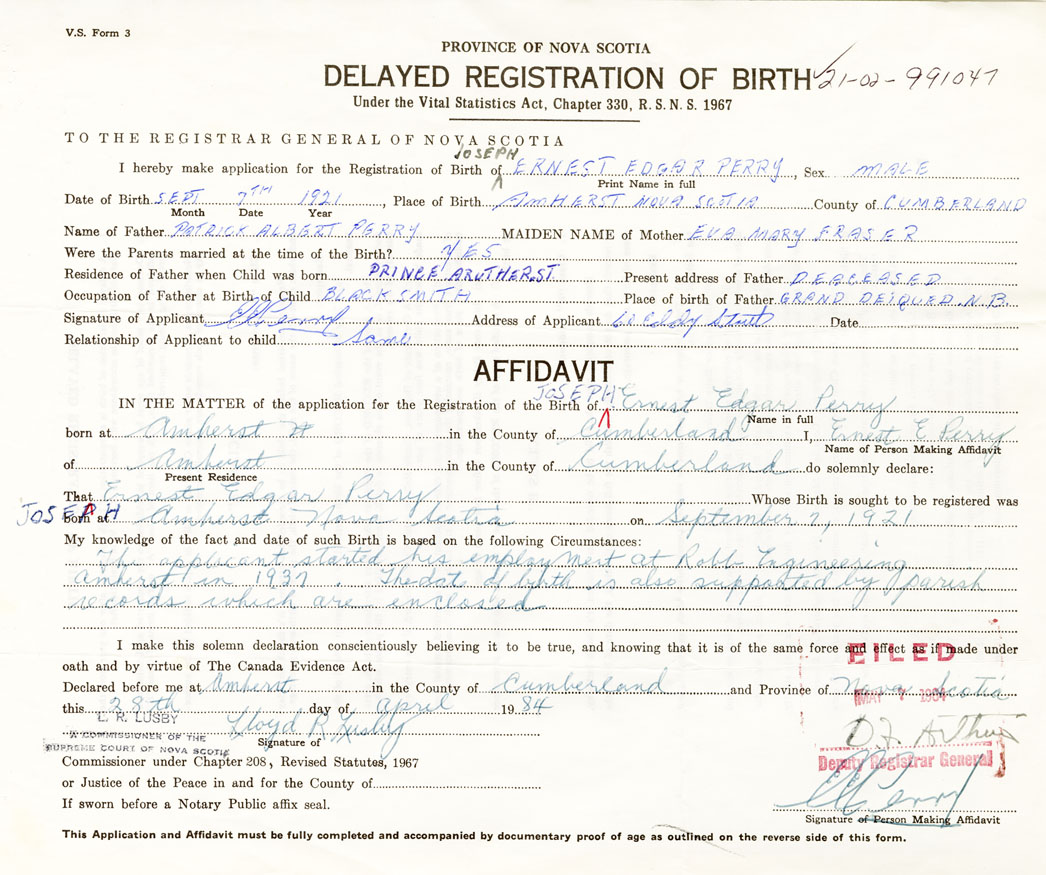 V.S. Form 3
PROVINCE OF NOVA SCOTIA
DELAYED REGISTRATION OF BIRTH 21-02-991047
Under the Vital Statistics Act, Chapter 330, R.S.N.S. 1967
TO THE REGISTRAR GENERAL OF NOVA SCOTIA
JOSEPH
I hereby make application for the Registration of Birth of ERNEST EDGAR PERRY, Sex MALE
Print Name in full
Date of Birth SEPT 7TH 1921, Place of Birth AMHERST NOVA SCOTIA County of CUMBERLAND
Month Date Year
Name of Father PATRICK ALBERT PERRY MAIDEN NAME of Mother EVA MARY FRASER
Were the Parents married at the time of the Birth? YES
Residence of Father when Child was born PRINCE ARUTHER.ST Present address of Father DEACEASED
Occupation of Father at Birth of Child BLACK SMITH Place of birth of Father GRAND DEIQUED N.B.
Signature of Applicant EEPerry Address of Applicant Eddy Street Date
Relationship of Applicant to child Same
AFFIDAVIT
JOSEPH
IN THE MATTER of the application for the Registration of the Birth of Ernest Edgar Perry
Name in full
born at Amherst in the County of Cumberland I, Ernest E Perry
Name of Person Making Affidavit
of Amherst in the County of Cumberland do solemnly declare:
Present Residence
That Ernest Edgar Perry Whose Birth is sought to be registered was
JOSEPH born at Amherst Nova Scotia on September 7, 1921
My knowledge of the fact and date of such Birth is based on the following Circumstances:
The applicant started his employment at Robb Engineering
Amherst in 1937. The date of birth is also supported by parish
records which are enclosed
I make this solemn declaration conscientiously believing it to be true, and knowing that it is of the same force and effect as if made under
FILED
oath and by virtue of The Canada Evidence Act.
Declared before me at Amherst in the County of Cumberland and Province of Nova Scotia
MAY 1984
this 28th day of April 1984
L. R. LUSBY Lloyd R Lusby
A COMMISSIONER OF THE
SUPREME COURT OF NOVA SCOTIA
Signature of
D F Arthur
Commissioner under Chapter 208, Revised Statutes, 1967
Deputy Registrar General
or Justice of the Peace in and for the County of
If sworn before a Notary Public affix seal.
EEPerry
Signature of Person Making Affidavit
This Application and Affidavit must be fully completed and accompanied by documentary proof of age as outlined on the reverse side of this form.